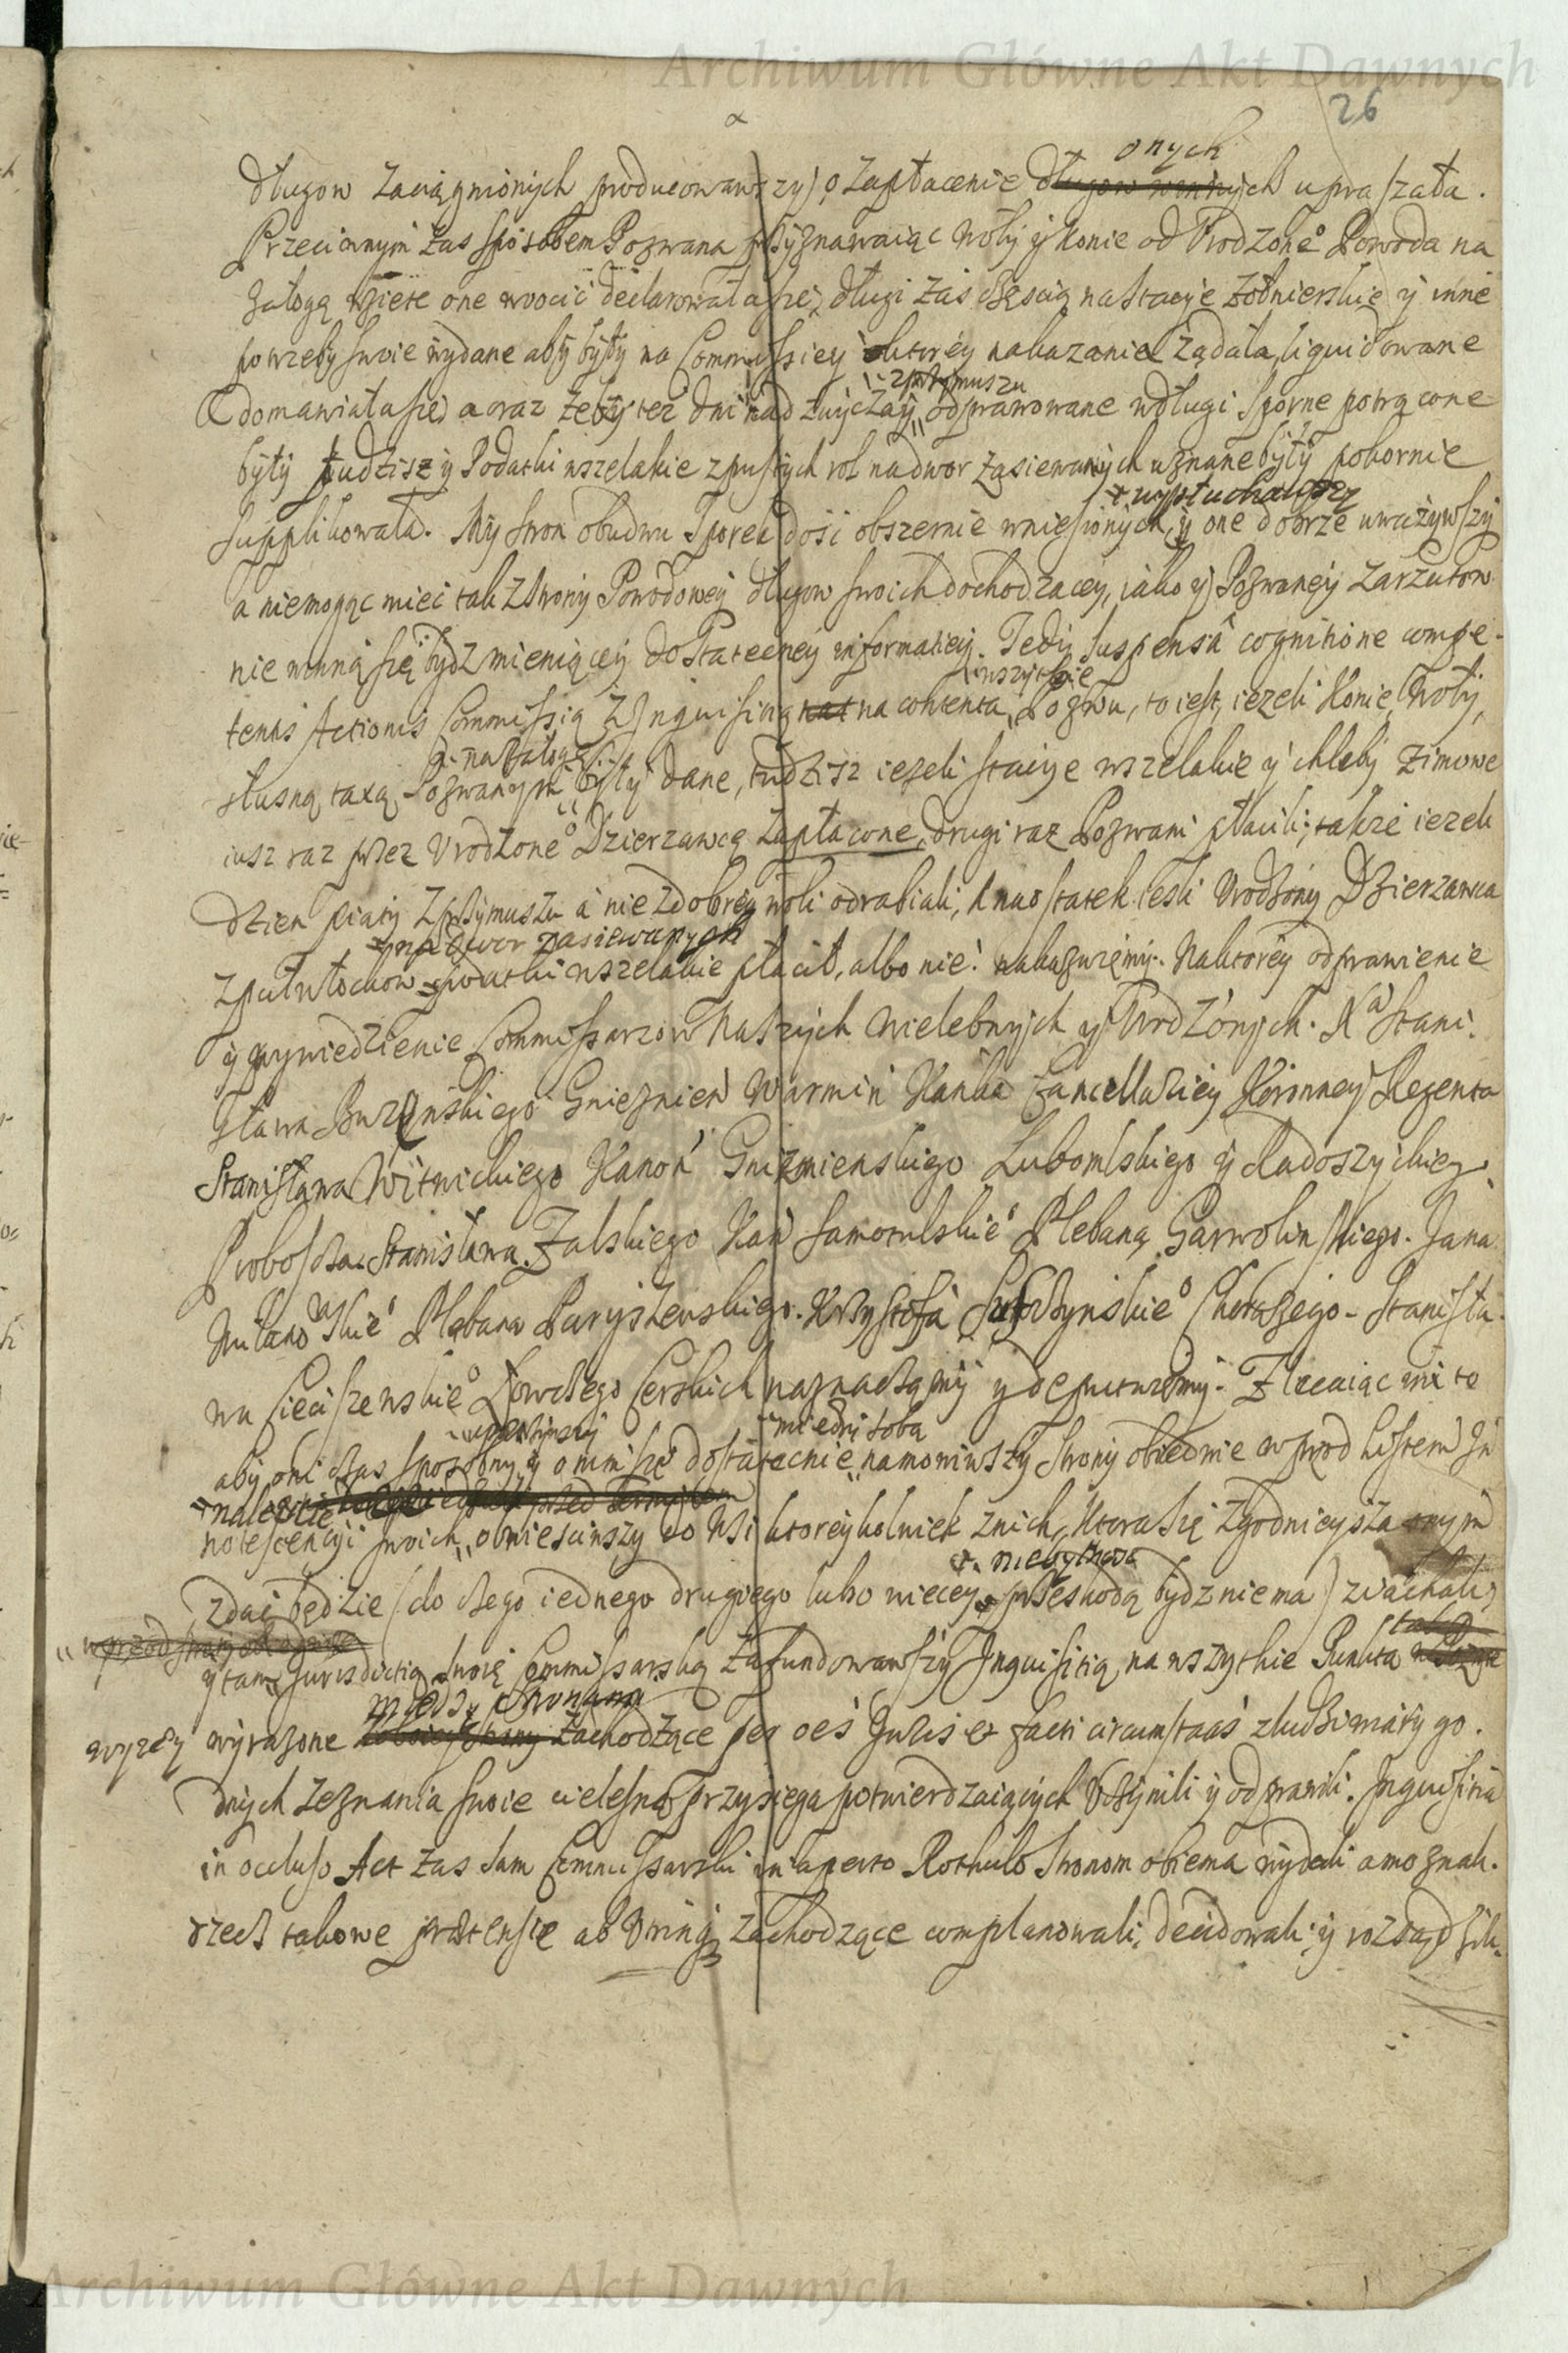 Archiwum Główne Akt Dawnych
26
onych
długow zaciągnionych producowawszy, o zapłacenie długow winnych upraszała.
Przeciwnym zas sposobem Pozwana przyznawaiąc Woły y Konie od Urodzone° Powoda na
załogę wzięte one wrocić declarowała się, długi zaś częscią na stacyie żołnierskie y inne
potrzeby swoie wydane aby były na Commissiey ktorey nakazania żądała, liquidowane
z przymuszu
domawiała się, a oraz żeby też dni nad zwyczay odprawowane w długi sporne potrącone
były tudzisz y Podatki wszelakie z pustych rol na dwor zasiewanych uznane były pokornie
wysłuchawszy
supplikowała. My stron obudwu sporek dość obszernie wniesionych, y one dobrze uważywszy
a niemogąc mieć tak z strony Powodowey długow swoich dochodzącey, iako y Pozwaney zarzutow
nie winną się bydz mieniącey dostateczney informatiey. Tedy suspensâ cognitione compe-
wszytkie
tentis Actionis Commissią y Inquisitią na contenta Pozwu, to iest, iezeli Konie, Woły,
na załogę
słuszną taxą Pozwanym były dane, tudzisz iezeli stacyie wszelakie y chleby zimowe
iusz raz przez Urodzone° Dzierzawcę zapłacone, drugi raz Pozwani płacili; także iezeli
dzien piąty z przymuszu a nie z dobrey woli odrabiali, A na ostatek iesli Urodzony Dzierzawca
y na dwor zasiewanych
z pułwłoczkow podatki wszelakie płacił, albo nie! nakazuiemy. Na ktorey odprawienie
y wywiedzienie Commissarzow Naszych Wielebnych y Urodzonych. X<sup>a</sup> Stani-
sława Buzenskiego Gnieznień Warmiń Kanka Cancellariey Koronney Regenta
Stanisława Witwickiego Kanoń Gnieznienskiego Lubomlskiego y Radoszyckieg°
Proboszcza. Stanisława Zalskiego Kań Samotulskie° Plebana Garwolinskiego. Jana
Milanowskie° Plebana Paryszewskiego. Krzysztofa Chorązego - Stanisła-
wa Cieciszewskie° Łowczego Czerskich naznaczamy y deputuiemy. Zlecaiąc im to
upatrzywszy między sobą
aby oni czas sposobny y o nim się dostatecznie namowiwszy strony obiedwie wprzod Listem In
należycie przed terminem
notescencyi swoich obwiesciwszy do Wsi ktoreykolwiek z nich, ktora się zgodnieysza onym
niebytność
zdać będzie (do czego iednego drugiego lubo więcey przeszkodą bydz niema) ziachali,
tak
y tam Jurisdictią swoię Commissarską zafundowawszy Inquisitią na wszytkie Punkta
między stronami
wyzey wyrazone zachodzące per oēs Juris et facti circumstaas z ludzi wiary go-
dnych zeznania swoie cielesną przysięgą potwierdzaiących uczynili y odprawili. Inquisitią
in occluso Act zas sam Commissarski in aperto Rothulo stronom obiema wydali a mo znak.
rzecz takowe praetensye ab utrinq zachodzące complanowali, decidowali y rozsądzili.
Archiwum Główne Akt Dawnych